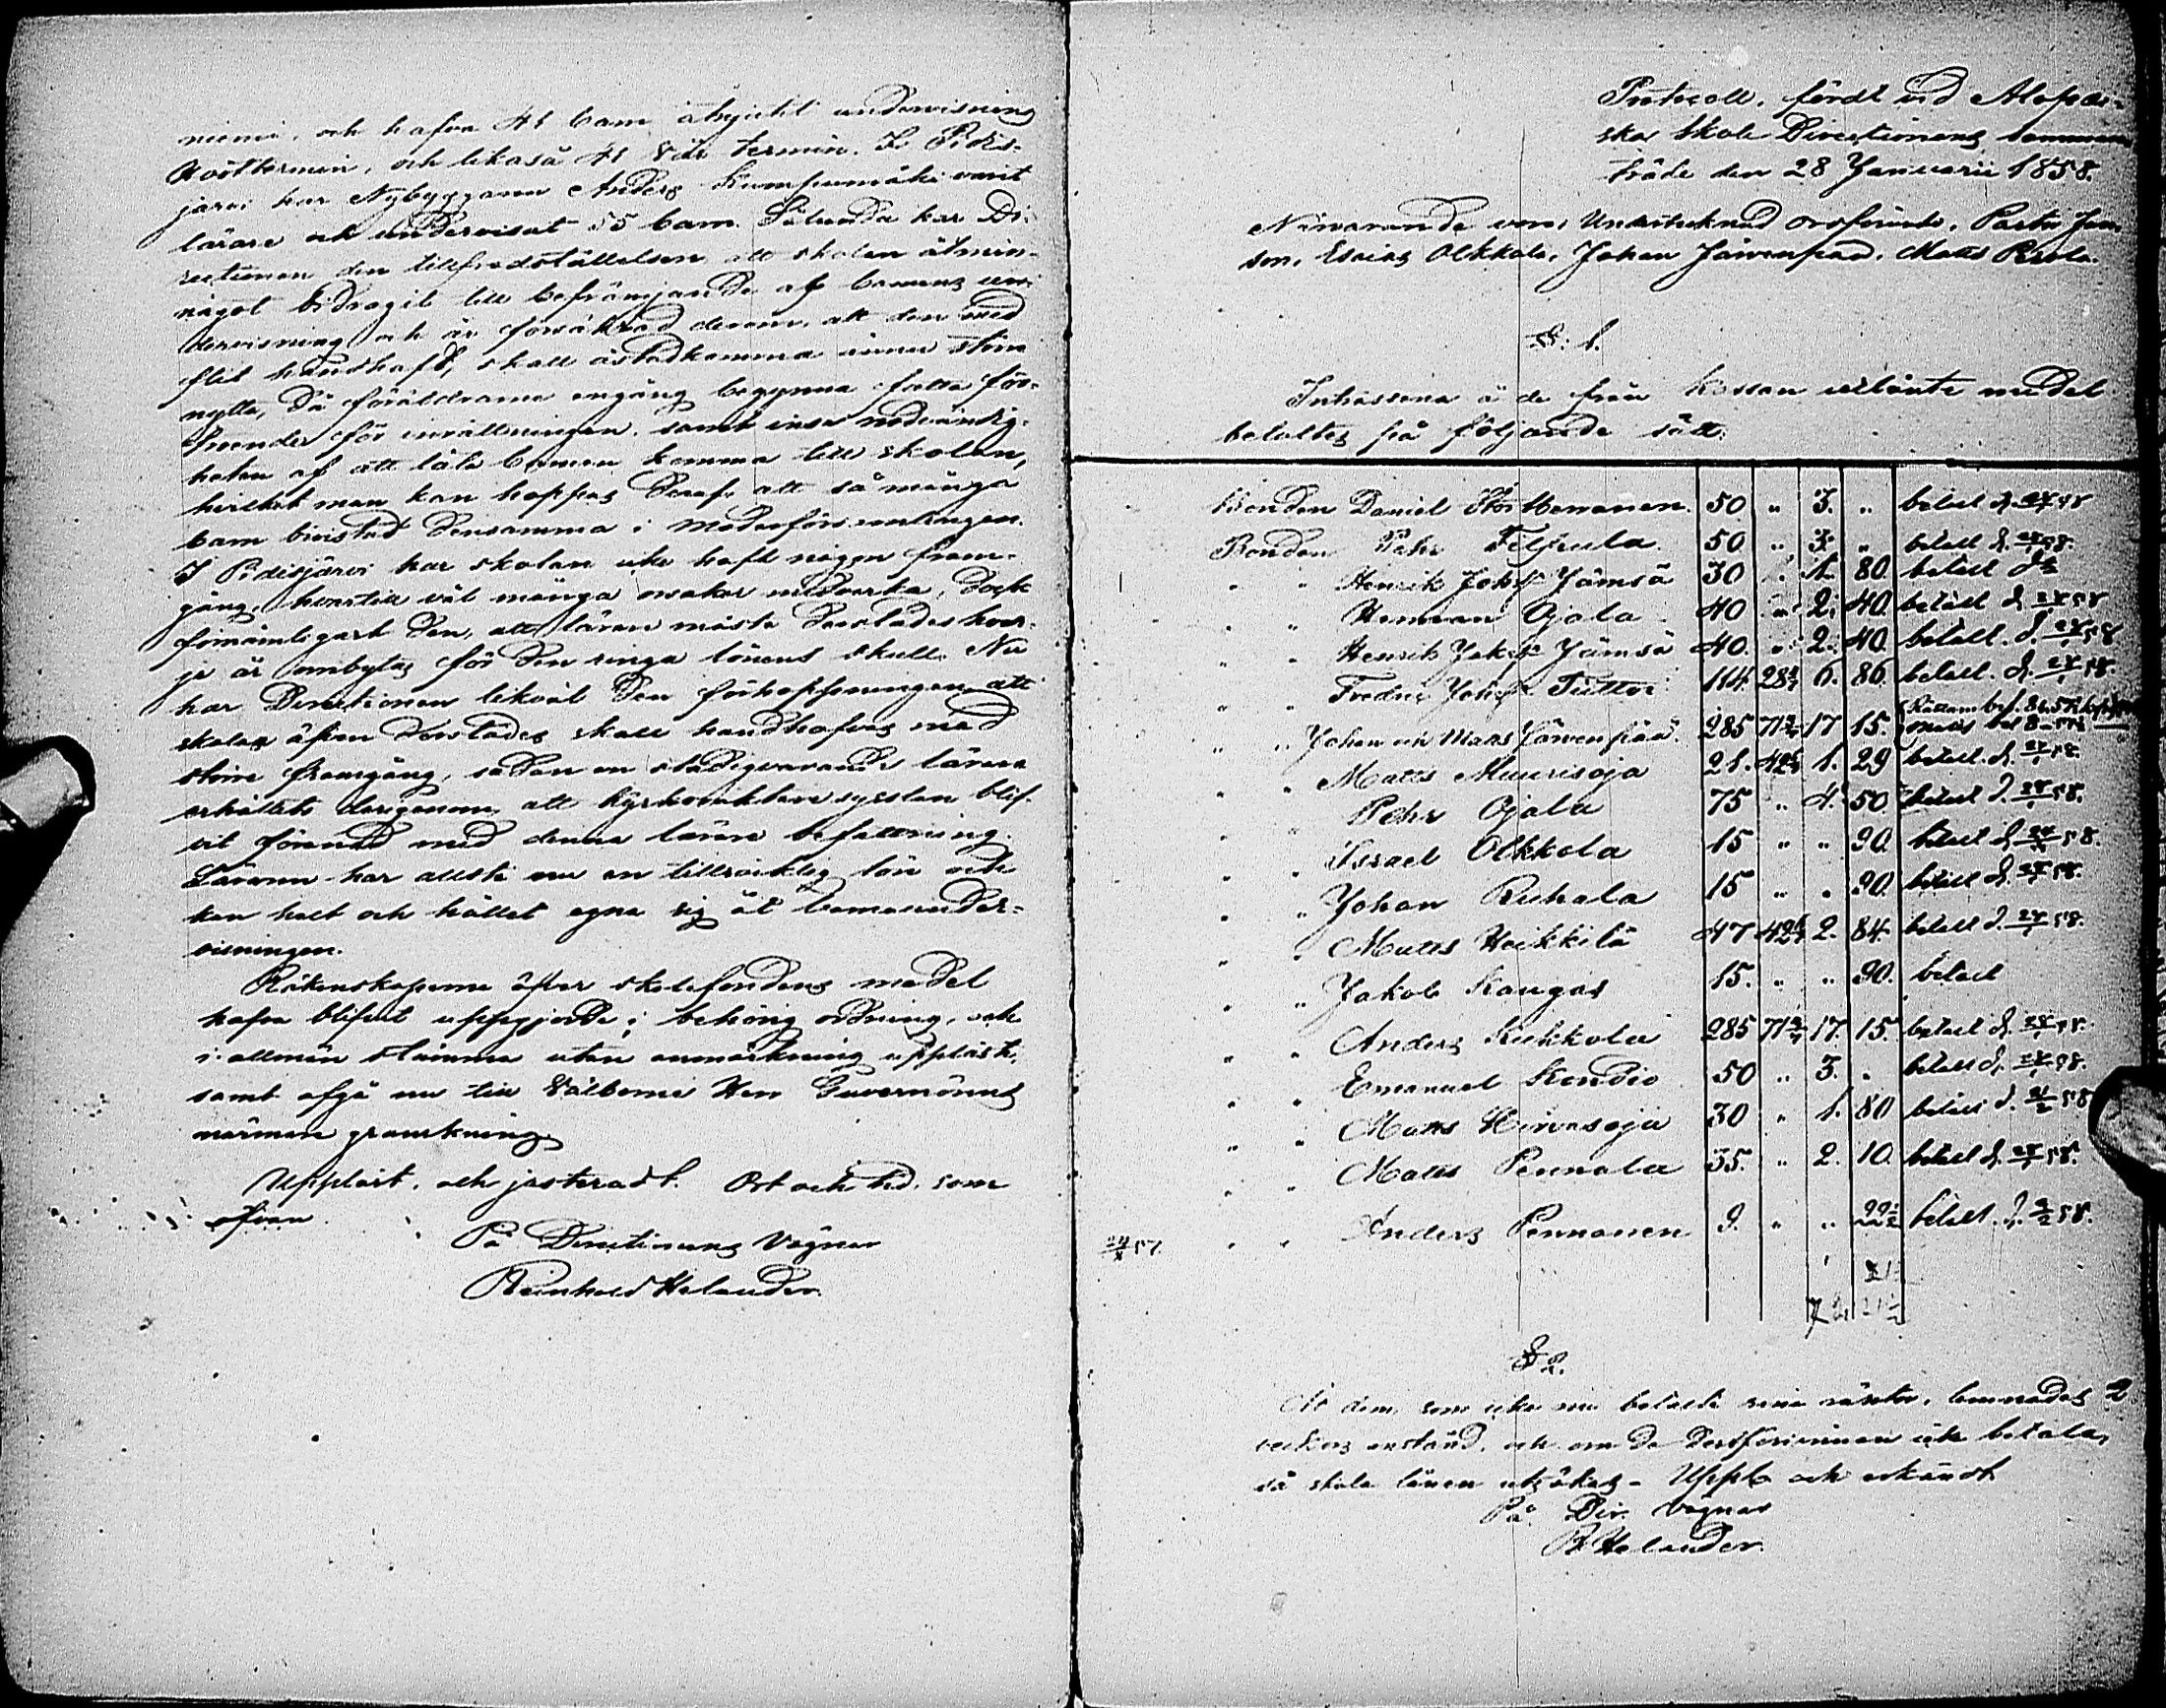 niemi, och hafva 41 barn åtnjutit undervisning
Hösttermin, och likaså 41 Vår termin. I Pidis-
järvi har Nybyggaren Anders Kumpumäki varit
lärare och undervisat 55 barn. Sålunda har Di-
rectionen den tillfredställelsen att skolan åtmin-
något bidragit till befrämjande af barnens un-
dervisning och är försäkrad derom, att den med
flit handhafd, skall åstadkomma ännu större
nytta, då föräldrarna engång begynna fatta för-
troende för inrättningen, samt inse nödvändig-
heten af att låta barnen komma till skolan,
hvilket man kan hoppas deraf, att så många
barn bivistat densamma i moderförsamlingen.
I Pidisjärvi har skolan icke haft någon fram-
gång, hvartill väl många orsaker medverka, dock
förnämligast den, att lärare måste derstädes hvar-
je år ombytas för den ringa lönens skull. Nu
har Directionen likväl den förhoppningen att
skolan äfven derstädes skall handhafvas med
större framgång, sedan en stadigvarande lärare
erhållits derigenom, att Kyrkovaktare sysslan blif-
vit förenad med denna lärare befattning.
Läraren har alltså nu en tillräcklig lön och
kan helt och hållet egna sig åt barnaunder-
visningen.
Räkenskaperne öfver skolefondens medel
hafva blifvit uppgjorde i behörig ordning, och
i allmän stämma utan anmärkning uppläste,
samt afgå nu till Välborne Herr Guvernörens
närmare granskning.
Uppläst, och justeradt. Ort och tid, som
ofvan.
På Directionens Vägnar
Reinhold Helander.
Protocoll, fördt vid Alopæi-
ska Skole Directionens samman
träde den 28 Januarii 1858.
Närvarande voro, Undertecknad ordförande, Pastor
son, Esaias Olkkola, Johan Järvenpää, Matts
§: 1.
Intressena å de från kassan utlånte medel
betaltes på följande sätt:
Bonden Daniel Stor Herranen. 50 „ 3. „ betalt d. 28/1 58
Bonden Pehr 50 „ 3 „ betalt d. 28/1 58.
„ „ Henrik Johsf. Jämsä 30 „ 1. 80. betalt
„ „ Herman Ojala 40 „ 2. 40. betalt d. 28/1 58
„ „ Henrik Jakobsf. Jämsä 40. „ 2. 40. betalt. d. 28/1 58
„ „ Fredric Johsf. Tuttoi 114. 28 4/7 6. 86. betalt. d. 28/1 58.
„ „ Johan och Matts Järvenpää. 285 71 3/7 17 15.
„ „ Matts Muurisoja 21. 42 6/7 1. 29 betalt. d. 28/1 58.
„ „ Pehr Ojala 75 „ 4. 50 betalt d. 28/1 58.
„ „ Israel Olkkola 15 „ „ 90. betalt d. 28/1 58.
„ „ Johan Ruhala 15 „ „ 90. betalt d. 28/1 58.
„ „ Matts Heikkilä 47 42 6/7 2. 84. betalt d. 28/1 58.
„ „ Jakob Kangas 15. „ „ 90. betalt
„ „ Anders Kukkola 285 71 3/7 17. 15. betalt d. 28/1 58.
„ „ Emanuel Kondio 50 „ 3. „ betalt d. 28/1 58.
„ „ Matts Hirvasoja 30 „ 1. 80 betalt d. 21/2 58
„ „ Matts Pennala 35. „ 2. 10. betalt d. 28/1 58.
„ „ Anders Pennanen 9. „ „ betalt. d. 58.
§ 2.
Åt dem, som icke nu betalte sina räntor, lemnades 2
veckors anstånd, och om de dessförinnan icke betala,
så skola lånen utsökas. - Uppl. och erkändt
På Dir. Vägnar
R Helander.